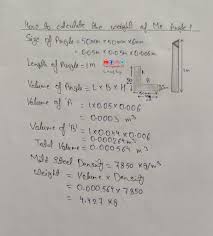 How to calculate the weight of Ms Angle?
Size of Angle = 50mm x 50mm x 6mm
= 0.05m x 0.05m x 0.006m
Length of Angle = 1m
Volume of Angle = L x B x H
Volume of 'A'
= 1x0.05x0.006
= 0.0003 m³
Volume of 'B' = 1x0.044x0.006
= 0.000264 m³
Total Volume = 0.000564 m³
Mild Steel Density = 7850 kg/m³
Weight = Volume x Density
= 0.000564 x 7850
= 4.427 Kg